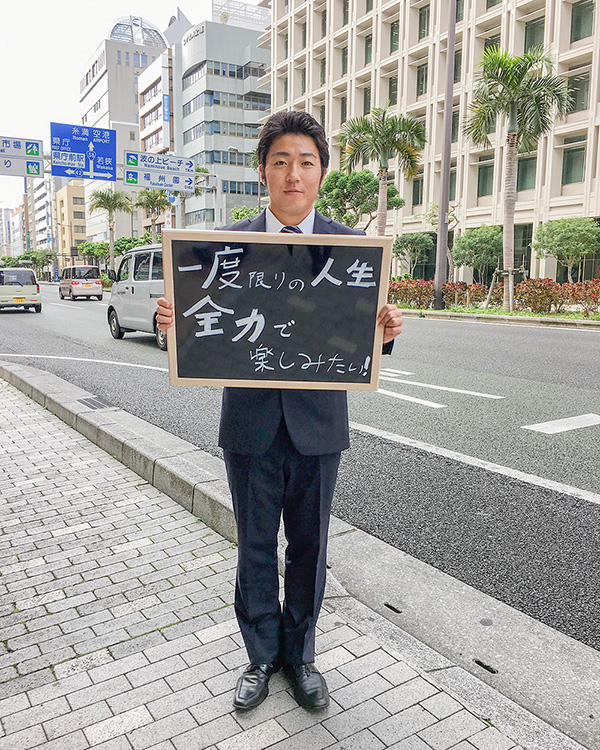 市場
り
糸満
Itoman
空港
AIRPORT
県庁
県庁前駅
58
42
若狭
Wakasa
波の上ビーチ
Naminoue Beach
1KM
福州園
Fukushuen
一度限りの人生
全力で
楽しみたい!